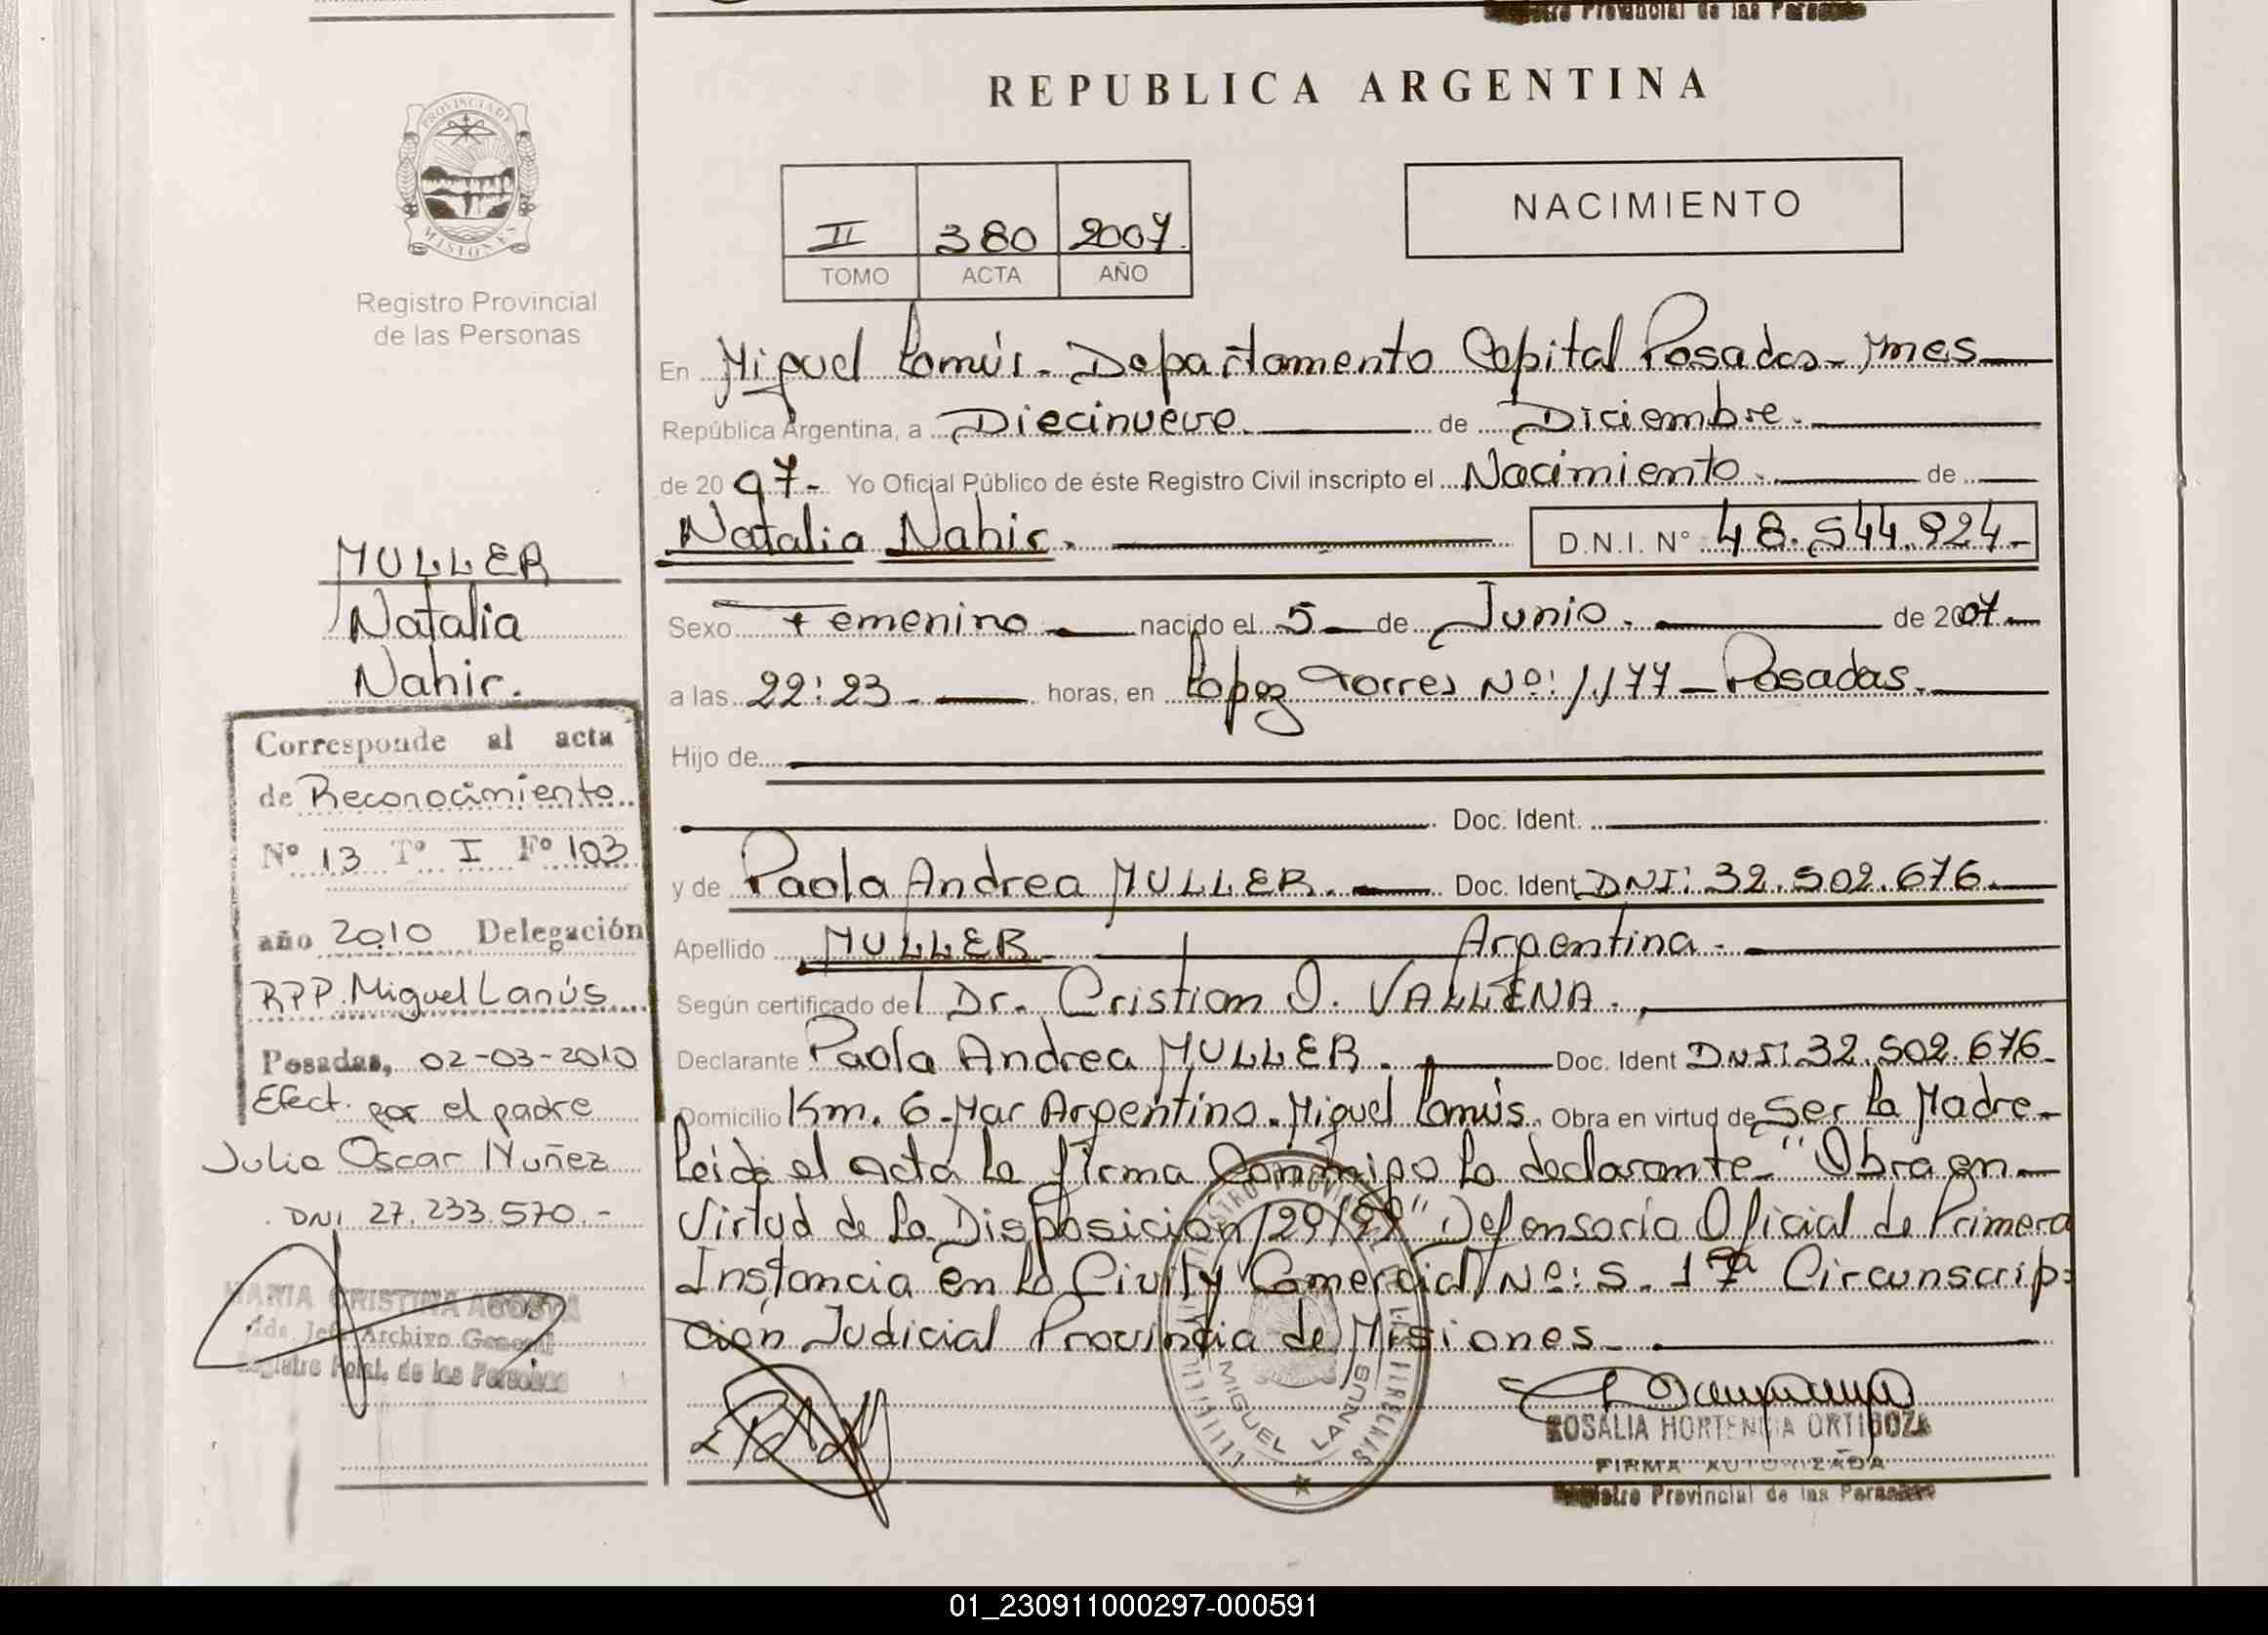 Registro Provincial de las Personas
REPUBLICA ARGENTINA
PROVINCIA DE
MISIONES
Registro Provincial
de las Personas
II 380 2007.
TOMO ACTA AÑO
NACIMIENTO
En Miguel Lanús - Departamento Capital Posadas - Mnes
República Argentina, a Diecinueve. de Diciembre.
de 20 07- Yo Oficial Público de éste Registro Civil inscripto el Nacimiento. de
Natalia Nahir. D.N.I. N° 48.544.924-
Sexo Femenino nacido el 5 de Junio. de 2007
a las 22:23- horas, en Lopez Torres Nº: 1.177 - Posadas.
Hijo de
Doc. Ident.
y de Paola Andrea MULLER. Doc. Ident DNI: 32.502.676.
Apellido MULLER Argentina.
Según certificado del Dr. Cristian O. VALLENA.
Declarante Paola Andrea MULLER. Doc. Ident DNI: 32.502.676-
Domicilio Km. 6-Mar Argentino. Miguel Lanús. Obra en virtud de Ser la Madre-
Leída el acta la firma Conmigo la declarante - "Obra en
Virtud de la Disposición 129/99" Defensoría Oficial de Primera
Instancia en lo Civil y Comercial Nº: 5. 1ª Circunscrip-
ción Judicial Provincia de Misiones.
MULLER
Natalia
Nahir.
Corresponde al acta
de Reconocimiento
N° 13 T° I F° 103
año 2010 Delegación
RPP. Miguel Lanús
Posadas, 02-03-2010
Efect. por el padre
Julio Oscar Nuñez
DNI 27.233.570.-
MARIA CRISTINA ACOSTA
Jefe Archivo General
Registro Pcial. de las Personas
MIGUEL LANUS
ROSALIA HORTENCIA ORTIGOZA
FIRMA AUTORIZADA
Registro Provincial de las Personas
01_230911000297-000591